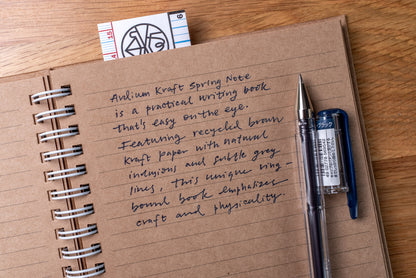 Ardium Kraft Spring Note
is a practical writing book
that's easy on the eye.
Featuring recycled brown
kraft paper with natural
indusions and subtle grey
lines, this unique ring-
bound book emphasizes
craft and physicality.